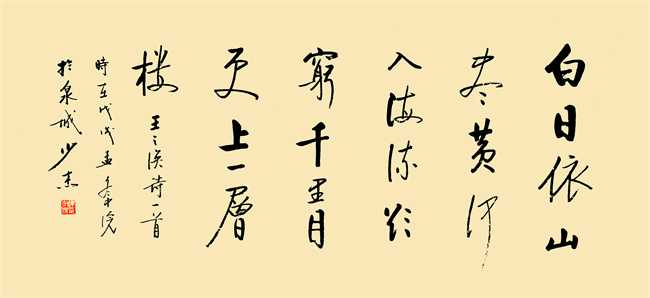 白日依山
尽黄河
入海流欲
窮千里目
更上一層
楼 王之涣诗一首
時在戊戌孟冬
於泉城少杰